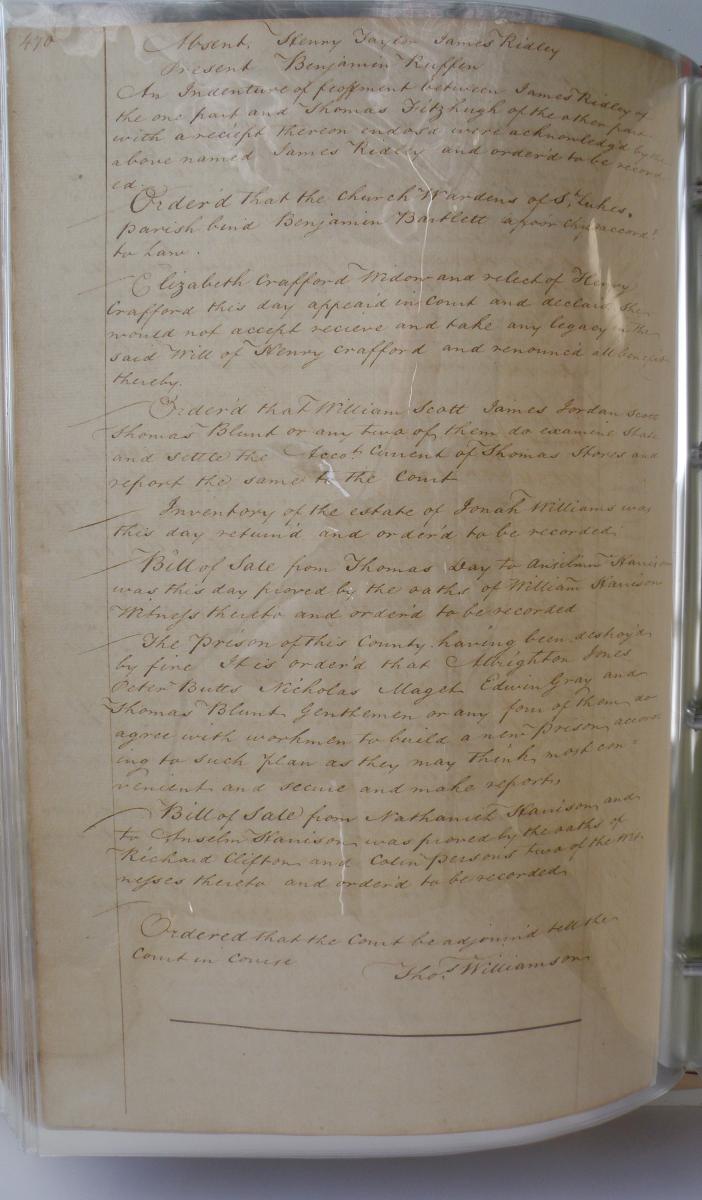 470
Absent, Henry Taylor James Ridley
Present Benjamin Ruffin
An Indenture of feoffment between James Ridley of
the one part and Thomas Fitzhugh of the other part
with a reciept thereon endors'd were acknowledg'd by the
above named James Ridley and order'd to be record
ed.
Order'd that the Church Wardens of St. Lukes
parish bind Benjamin Bartlett a poor accord.
to Law.
Elizabeth Crafford Widow and relect of Henry
Crafford this day appeaid in Court and declaid She
would not accept recieve and take any legacy the
said Will of Henry Crafford and renounc'd all benefit
thereby.
Order'd that William Scott James Jordan Scott
Thomas Blunt or any two of them do examine State
and settle the Accot. Current of Thomas Stores and
report the same to the Court
Inventory of the estate of Jonah Williams was
this day return'd and order'd to be recorded.
Bill of Sale from Thomas Day to Anselm Harrison
was this day proved by the oaths of William Harrison
Witness thereto and order'd to be recorded
The Prison of this County having been destroy'd
by fire It is order'd that Albrighton Jones
Peter Butts Nicholas Maget Edwin Gray and
Thomas Blunt Gentlemen or any four of them do
agree with workmen to build a new Prison accord
ing to such plan as they may think most con=
venient and secure and make report
Bill of Sale from Nathaniel Harrison and
to Anselm Harrison was proved by the oaths of
Richard Clifton and Colin Persons two of the Wit
nesses thereto and order'd to be recorded
Ordered that the Court be adjourn'd tell the
Court in Course
Thos. Williamson